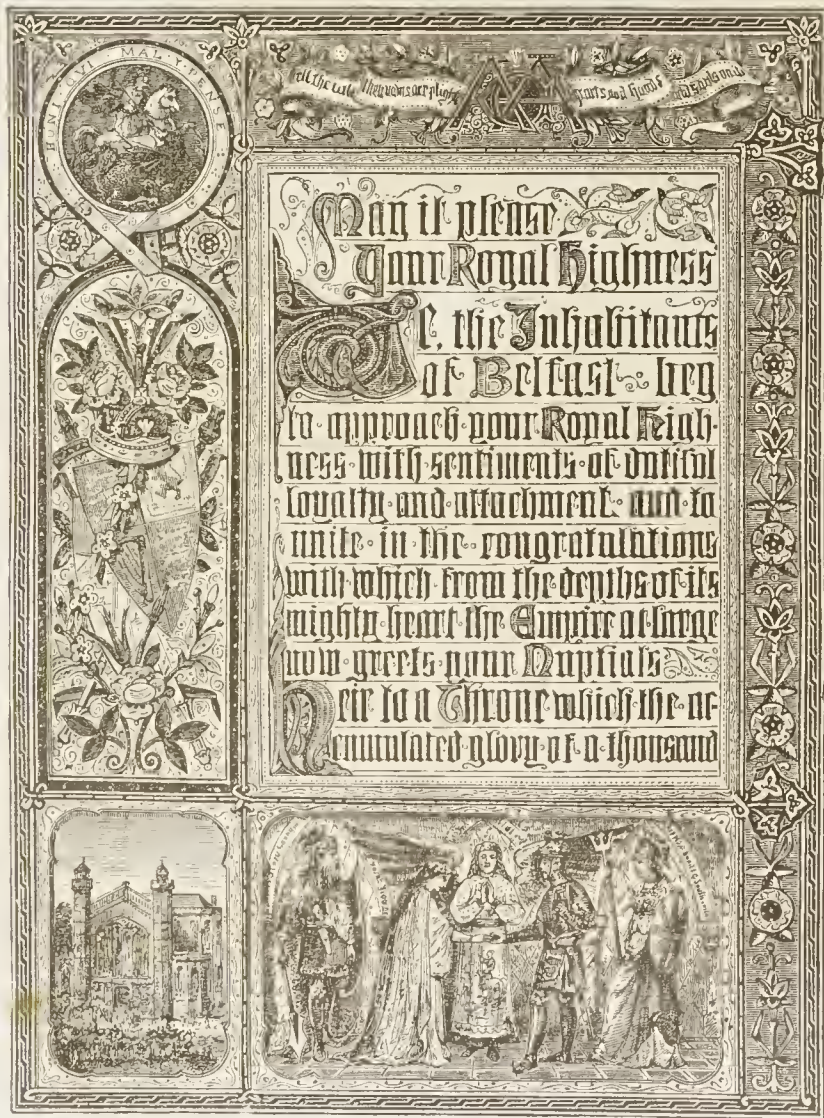 HONI QUI MAL Y PENSE
hearts and hands
May it please
Your Royal Highness
We, the Inhabitants
of Belfast beg
to approach your Royal High-
ness with sentiments of dutiful
loyalty and attachment and to
unite in the congratulations
with which from the depths of its
mighty heart the Empire at large
now greets your Nuptials
Heir to a Throne which the ac-
cumulated glory of a thousand